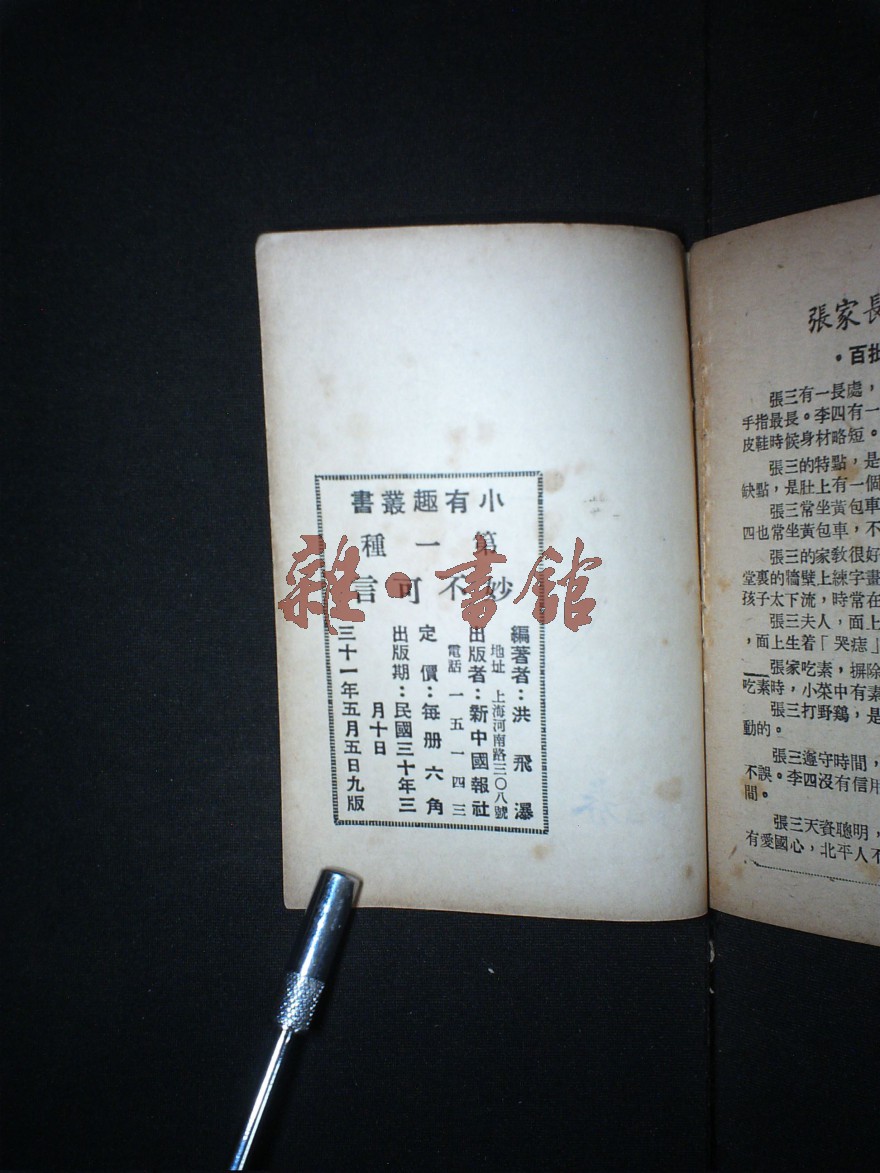 小有趣叢書
第一種
妙不可言
編著者：洪飛瀑
地址 上海河南路三〇八號
出版者：新中國報社
電話 一五一四三
定價：每册六角
出版期：民國三十年三
月十日
三十一年五月五日九版
雜·書館
張家長
·百批
張三有一長處，
手指最長。李四有一
皮鞋時候身材略短。
張三的特點，是
缺點，是肚上有一個
張三常坐黃包車
四也常坐黃包車，不
張三的家敎很好
堂裏的牆壁上練字畫
孩子太下流，時常在
張三夫人，面上
，面上生着「哭痣」
張家吃素，摒除
吃素時，小菜中有素
張三打野鷄，是
動的。
張三遵守時間，
不誤。李四沒有信用
間。
張三天資聰明，
有愛國心，北平人不